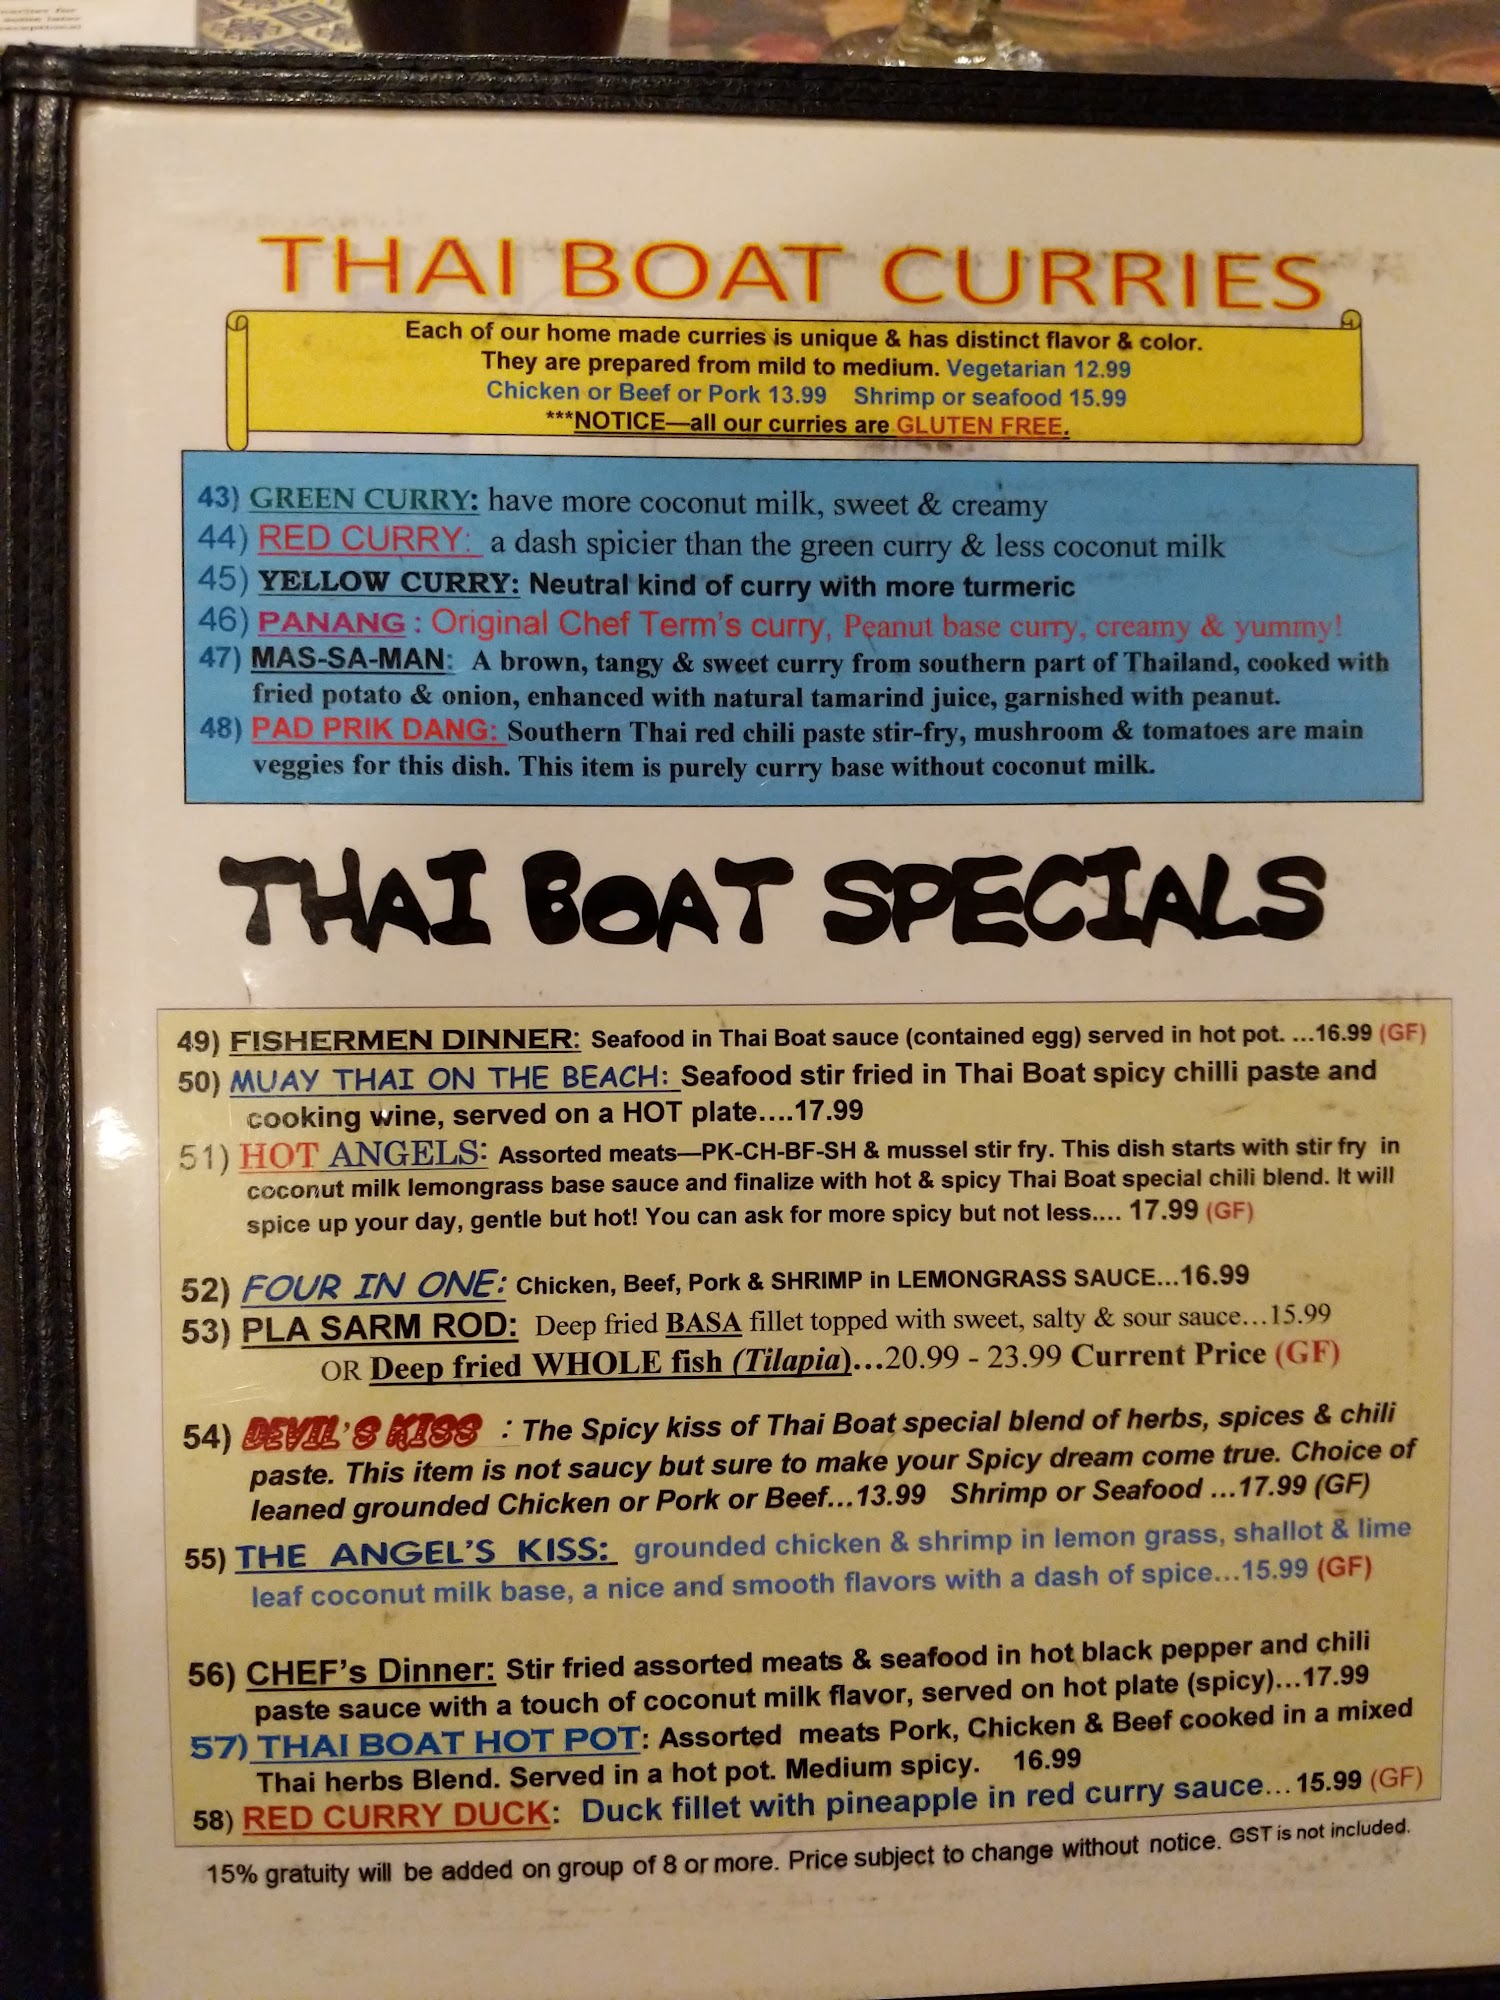 THAI BOAT CURRIES
Each of our home made curries is unique & has distinct flavor & color.
They are prepared from mild to medium. Vegetarian 12.99
Chicken or Beef or Pork 13.99 Shrimp or seafood 15.99
***NOTICE—all our curries are GLUTEN FREE.
43) GREEN CURRY: have more coconut milk, sweet & creamy
44) RED CURRY: a dash spicier than the green curry & less coconut milk
45) YELLOW CURRY: Neutral kind of curry with more turmeric
46) PANANG : Original Chef Term's curry, Peanut base curry, creamy & yummy!
47) MAS-SA-MAN: A brown, tangy & sweet curry from southern part of Thailand, cooked with
fried potato & onion, enhanced with natural tamarind juice, garnished with peanut.
48) PAD PRIK DANG: Southern Thai red chili paste stir-fry, mushroom & tomatoes are main
veggies for this dish. This item is purely curry base without coconut milk.
THAI BOAT SPECIALS
49) FISHERMEN DINNER: Seafood in Thai Boat sauce (contained egg) served in hot pot. ...16.99 (GF)
50) MUAY THAI ON THE BEACH: Seafood stir fried in Thai Boat spicy chilli paste and
cooking wine, served on a HOT plate....17.99
51) HOT ANGELS: Assorted meats—PK-CH-BF-SH & mussel stir fry. This dish starts with stir fry in
coconut milk lemongrass base sauce and finalize with hot & spicy Thai Boat special chili blend. It will
spice up your day, gentle but hot! You can ask for more spicy but not less.... 17.99 (GF)
52) FOUR IN ONE: Chicken, Beef, Pork & SHRIMP in LEMONGRASS SAUCE...16.99
53) PLA SARM ROD: Deep fried BASA fillet topped with sweet, salty & sour sauce...15.99
OR Deep fried WHOLE fish (Tilapia)...20.99 - 23.99 Current Price (GF)
54) DEVIL'S KISS : The Spicy kiss of Thai Boat special blend of herbs, spices & chili
paste. This item is not saucy but sure to make your Spicy dream come true. Choice of
leaned grounded Chicken or Pork or Beef...13.99 Shrimp or Seafood ...17.99 (GF)
55) THE ANGEL'S KISS: grounded chicken & shrimp in lemon grass, shallot & lime
leaf coconut milk base, a nice and smooth flavors with a dash of spice...15.99 (GF)
56) CHEF's Dinner: Stir fried assorted meats & seafood in hot black pepper and chili
paste sauce with a touch of coconut milk flavor, served on hot plate (spicy)...17.99
57) THAI BOAT HOT POT: Assorted meats Pork, Chicken & Beef cooked in a mixed
Thai herbs Blend. Served in a hot pot. Medium spicy. 16.99
58) RED CURRY DUCK: Duck fillet with pineapple in red curry sauce...15.99 (GF)
15% gratuity will be added on group of 8 or more. Price subject to change without notice. GST is not included.